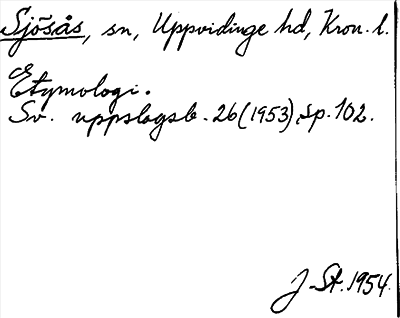 Sjösås, sn, Uppvidinge hd, Kron. l.
Etymologi.
Sv. uppslagsb. 26 (1953), sp. 102.
J-St. 1954.